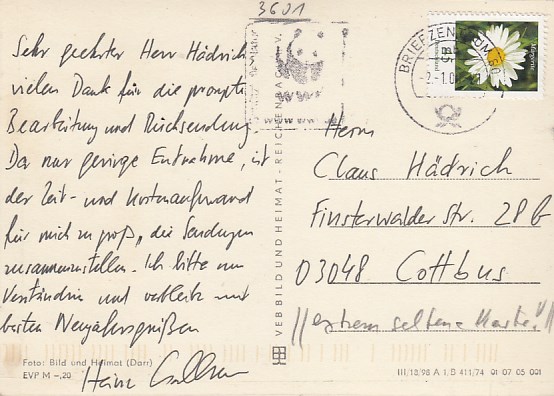 3601
Sehr geehrter Herr Hädrich
vielen Dank für die prompte
Bearbeitung und Rücksendung.
Da nur geringe Entnahme, ist
der Zeit- und Kostenaufwand
für mich zu groß, die Sendungen
zusammenzustellen. Ich bitte um
Verständnis und verbleibe mit
besten Neujahrsgrüßen
Heinz
Foto: Bild und Heimat (Darr)
EVP M –,20
VEB BILD UND HEIMAT · REICHENBACH I. V.
BRIEFZENTRUM
Herrn
Claus Hädrich
Finsterwalder Str. 28 G
03048 Cottbus
//extrem seltene Karte!//
III/18/98 A I/B 411/74 01 07 05 001